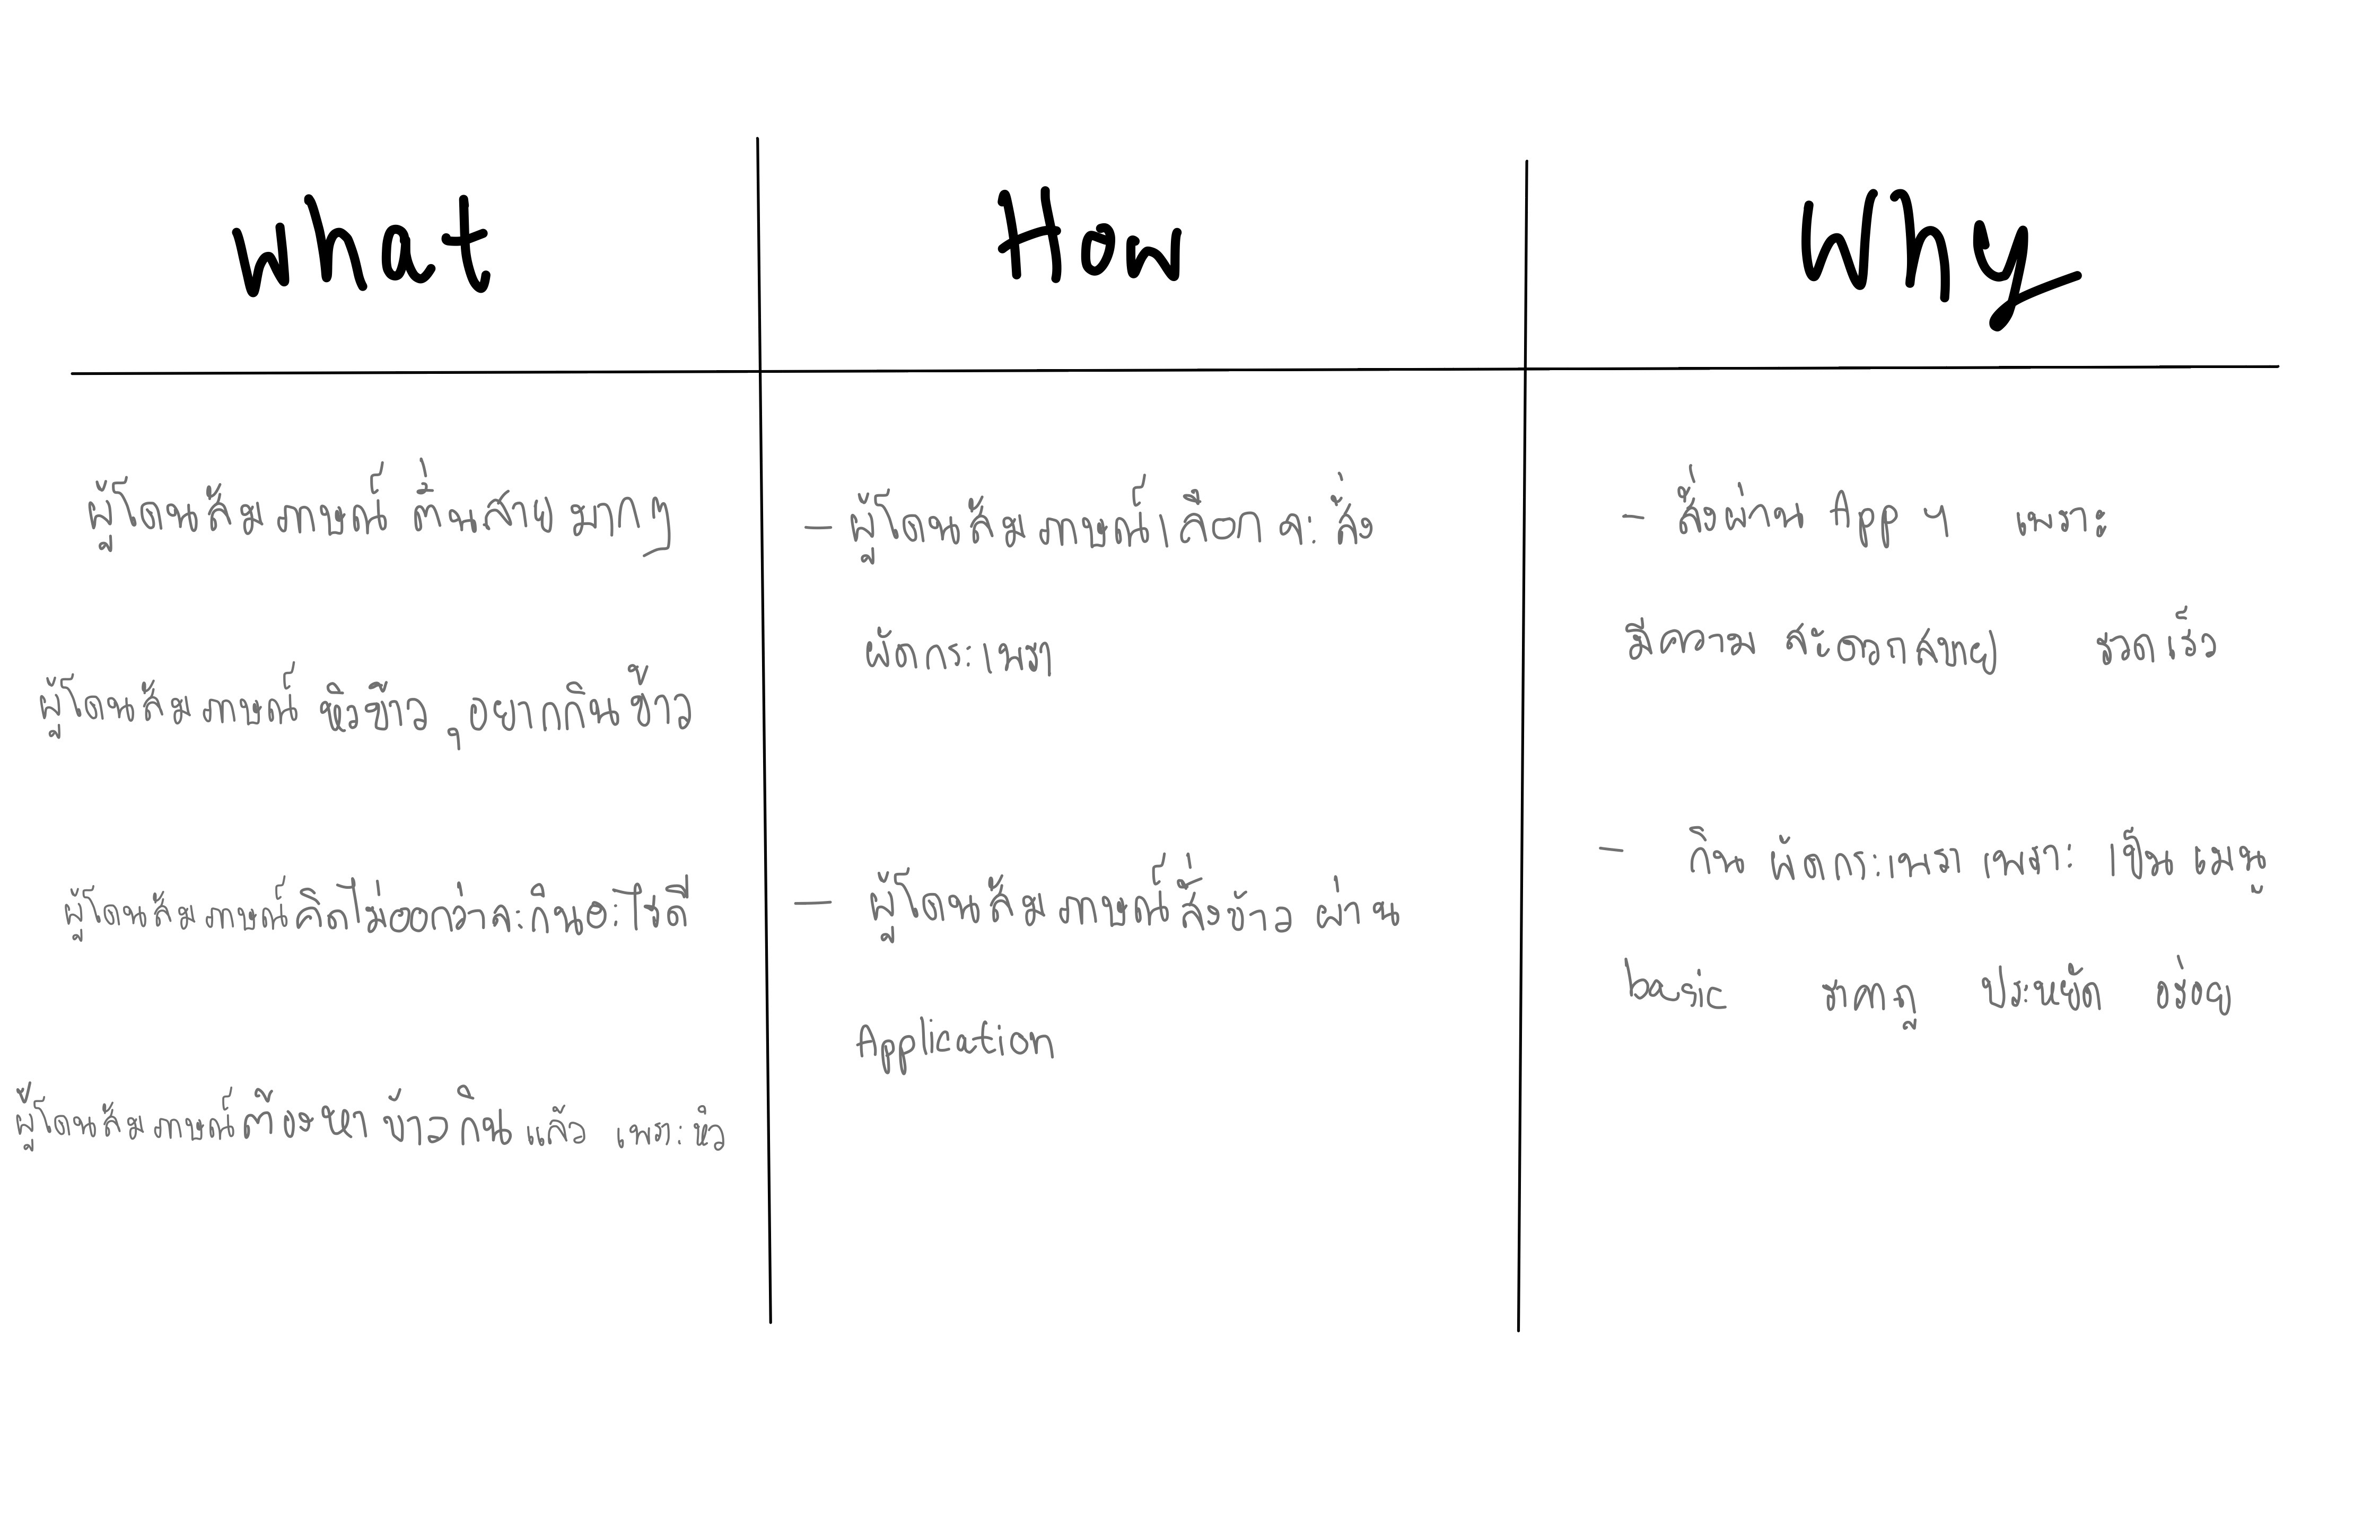 what
How
Why
ผู้โดนสัมภาษณ์ ตื่นสาย มากๆ
ผู้โดนสัมภาษณ์ หิวข้าว , อยากกินข้าว
ผู้โดนสัมภาษณ์คิดไม่ออกว่าจะกินอะไรดี
ผู้โดนสัมภาษณ์ต้องหา ข้าว กิน แล้ว เพราะ หิว
- ผู้โดนสัมภาษณ์เลือก จะ สั่ง
ผัดกระเพรา
- ผู้โดนสัมภาษณ์สั่งข้าว ผ่าน
Application
- สั่งผ่าน App ฯ เพราะ
มีความ สะดวกสบาย รวดเร็ว
- กิน ผัดกระเพรา เพราะ เป็น เมนู
basic ราคาถูก ประหยัด อร่อย